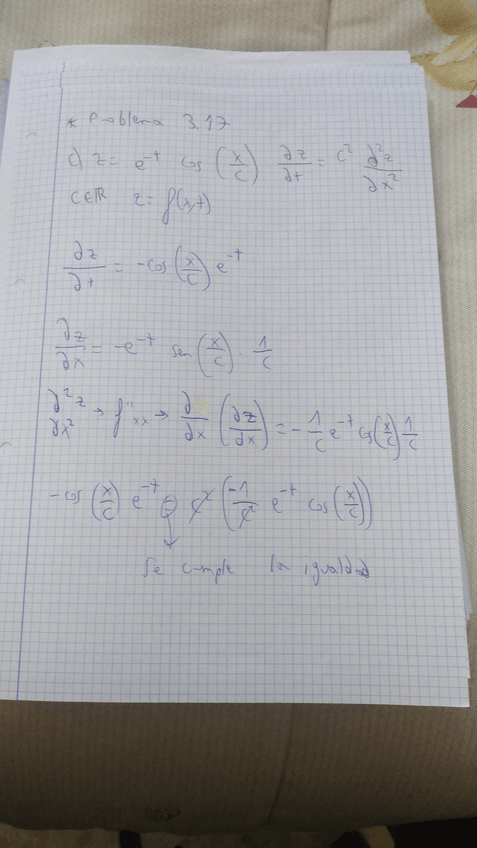 * Problema 3.17
c) z = e^-t cos (x/c) ∂z/∂t = c² ∂²z/∂x²
c∈ℝ z = f(x,t)
∂z/∂t = -cos (x/c) e^-t
∂z/∂x = -e^-t sen (x/c) · 1/c
∂²z/∂x² → f''xx → ∂/∂x (∂z/∂x) = - 1/c e^-t cos (x/c) 1/c
-cos (x/c) e^-t = c² (-1/c² e^-t cos (x/c))
↓
Se cumple la igualdad